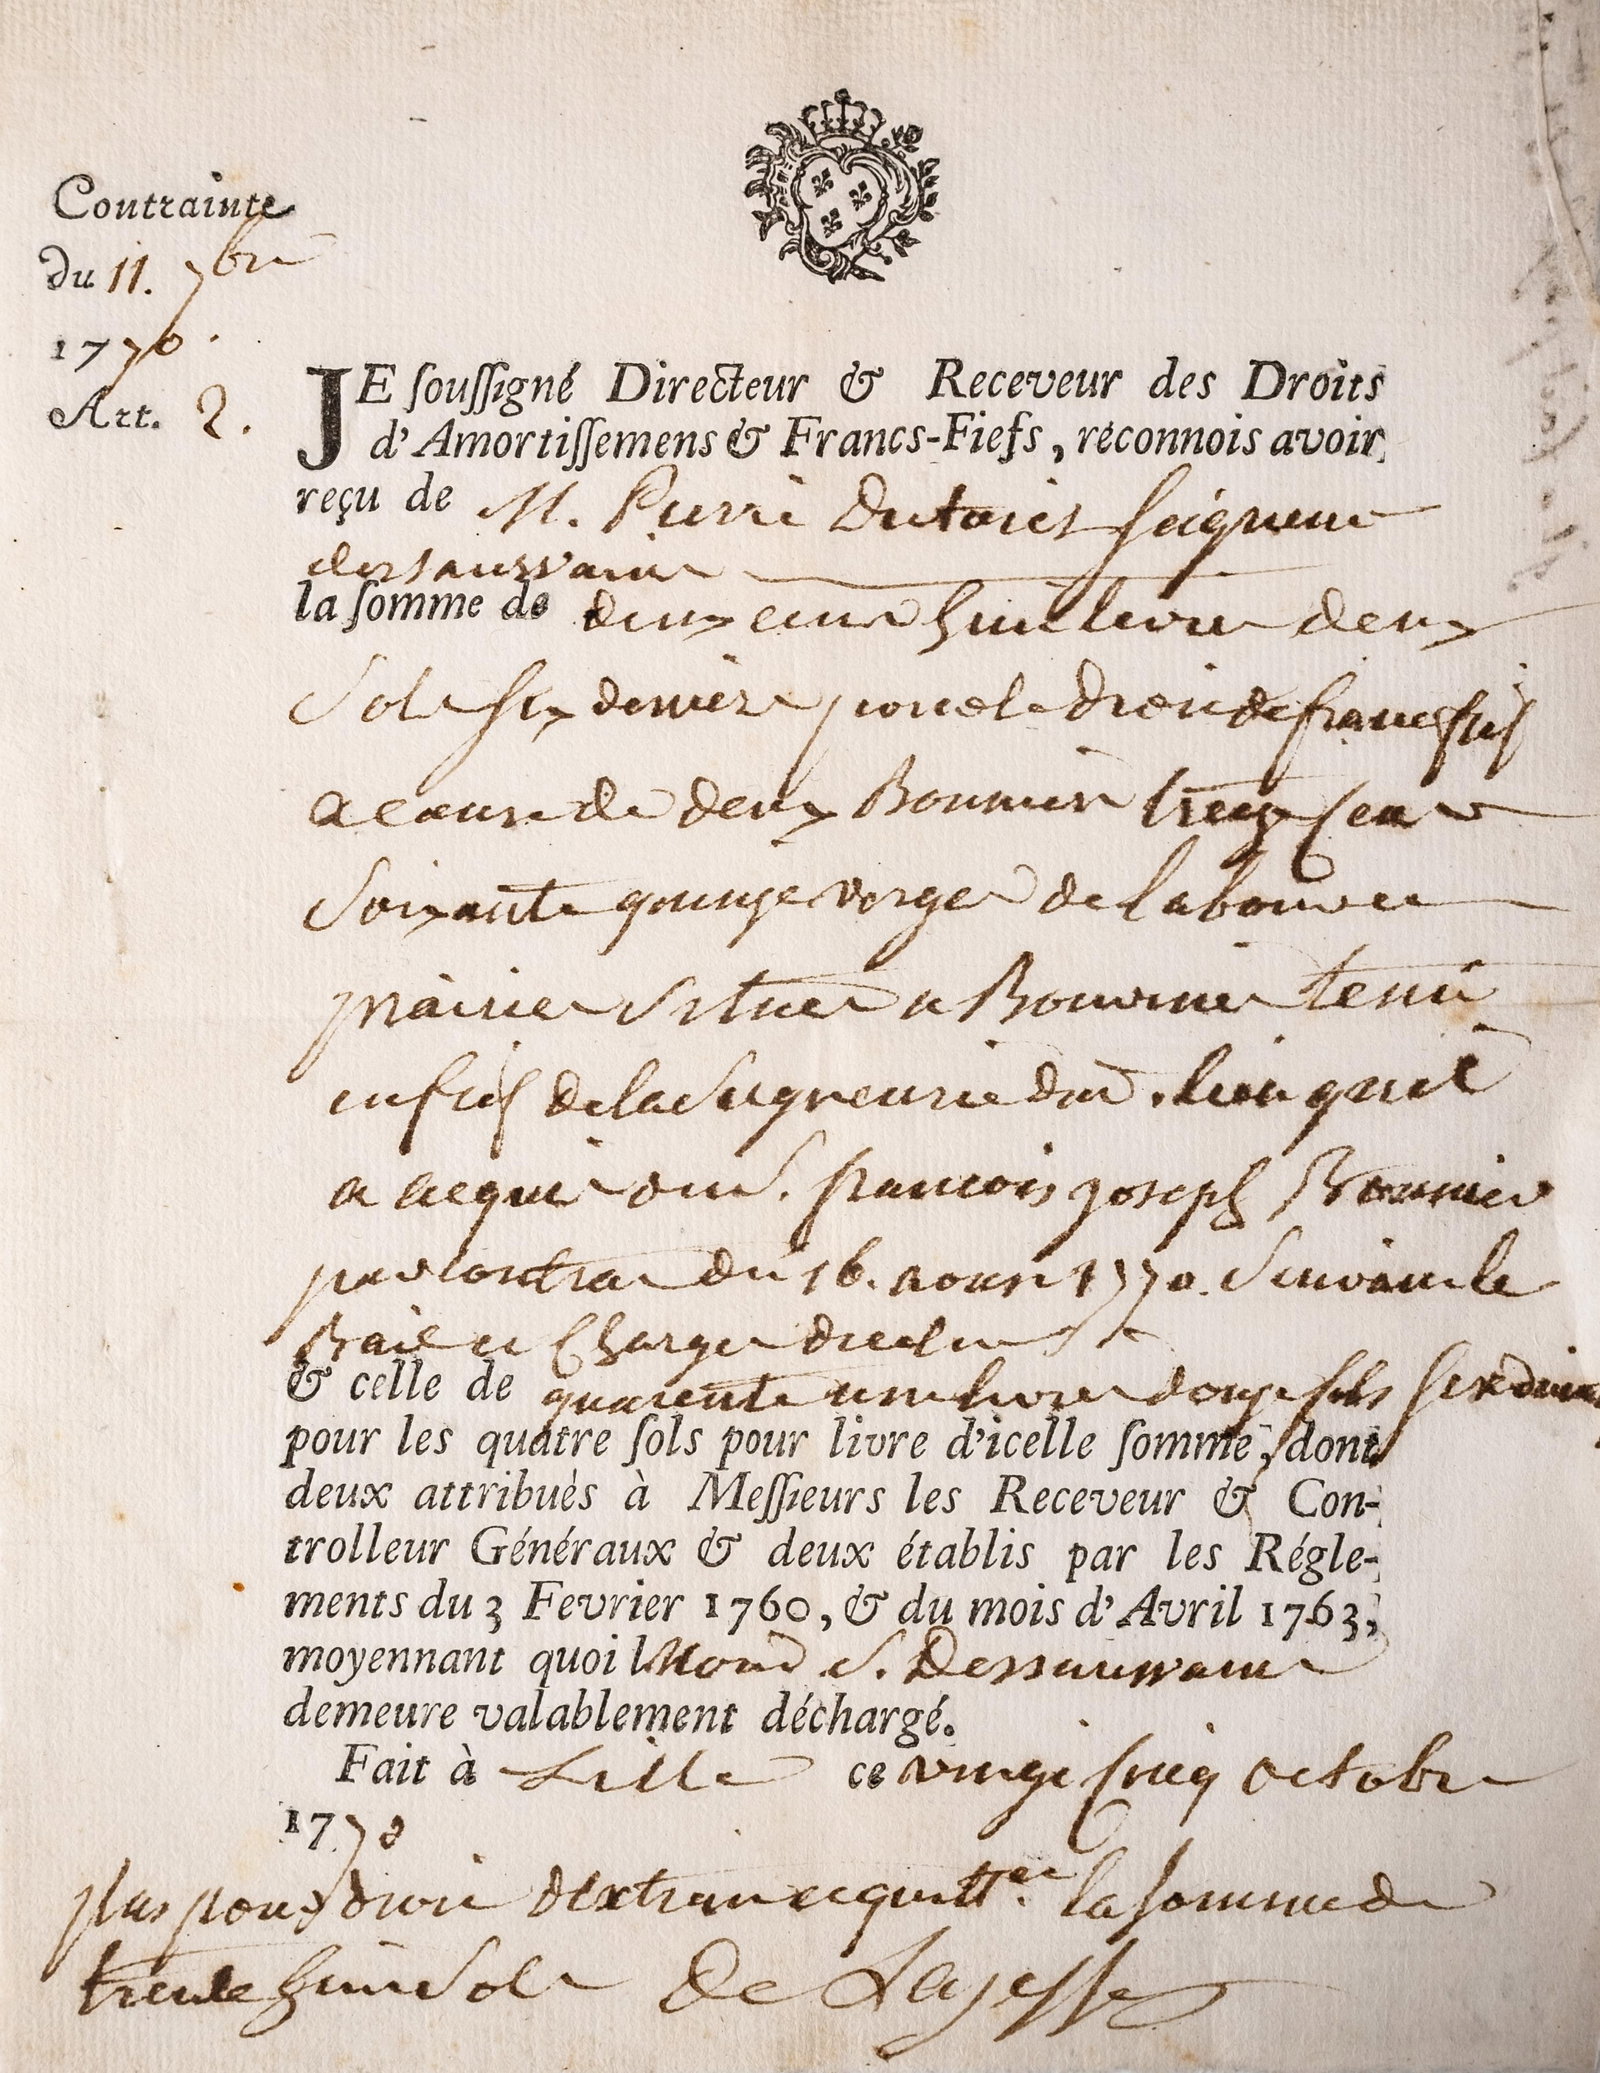 Contrainte
du 11. 7bre
1770.
Art. 2.
JE souſſigné Directeur & Receveur des Droits
d'Amortiſſemens & Francs-Fiefs, reconnois avoir
reçu de M. Pierre Dutoict seigneur
la ſomme de deux cent huit livres deux
Sols six deniers pour le droit de franc fief
a cause de deux Bonniers treize cent
Soixante quinze verges de labour et
prairies situées a Bouvines tenu
en fief de la Seigneurie dud. lieu quil
a acquis du S. francois joseph Bonnier
par contrat du 16. aoust 1770. Suivant le
Bail et Charges diceluy
& celle de quarente une livres douze sols six deniers
pour les quatre ſols pour livre d'icelle ſomme, dont
deux attribués à Meſſieurs les Receveur & Con-
trolleur Généraux & deux établis par les Régle-
ments du 3 Fevrier 1760, & du mois d'Avril 1763,
moyennant quoi S. Dessauwains
demeure valablement déchargé.
Fait à Lille ce vingt cinq octobre
1770
plus pour droit dextrait et quittce la somme de
trente huit Sols De Lajesse